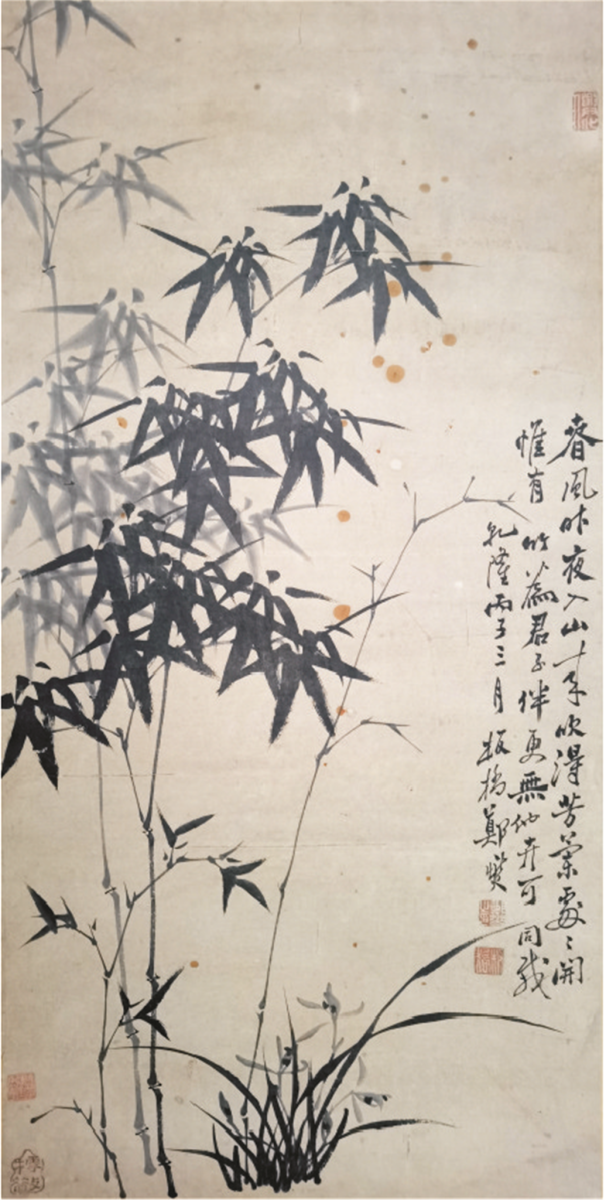 春風昨夜入山來吹得芳蘭處〻開
惟有竹為君子伴更無他卉可同栽
乾隆丙子三月板橋鄭燮